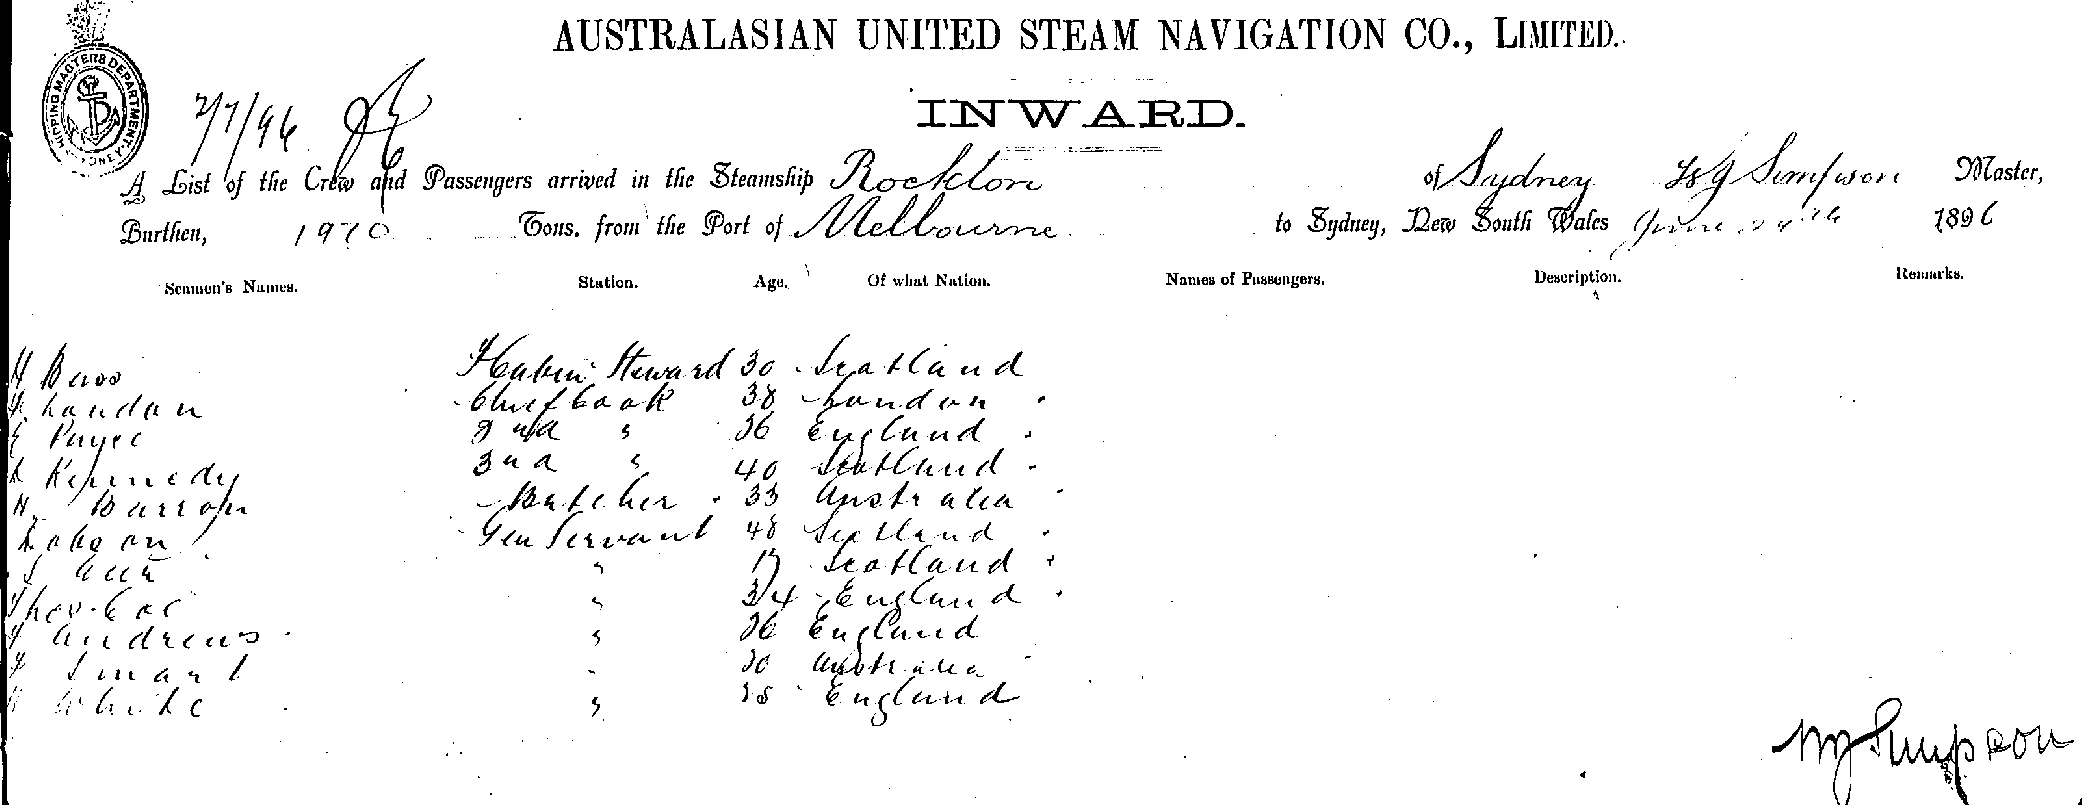 AUSTRALASIAN UNITED STEAM NAVIGATION CO., LIMITED.
SHIPPING MASTERS DEPARTMENT
INWARD.
2/7/96
A List of the Crew and Passengers arrived in the Steamship Rockton of Sydney W J Simpson Master,
Burthen, 1970 Tons. from the Port of Melbourne to Sydney, New South Wales June 1896
Seamen's Names. Station. Age. Of what Nation. Names of Passengers. Description. Remarks.
H Bass Steward 30 Scotland
London Chief Cook 38 London
E 2nd " 36 England
Kennedy 3rd " 40 Scotland
H. Barron Butcher 33 Australia
Gen Servant 48 Scotland
S " 17 Scotland
" 34 England
Andrews " 36 England
Smart " 30 Australia
White " England
W J Simpson